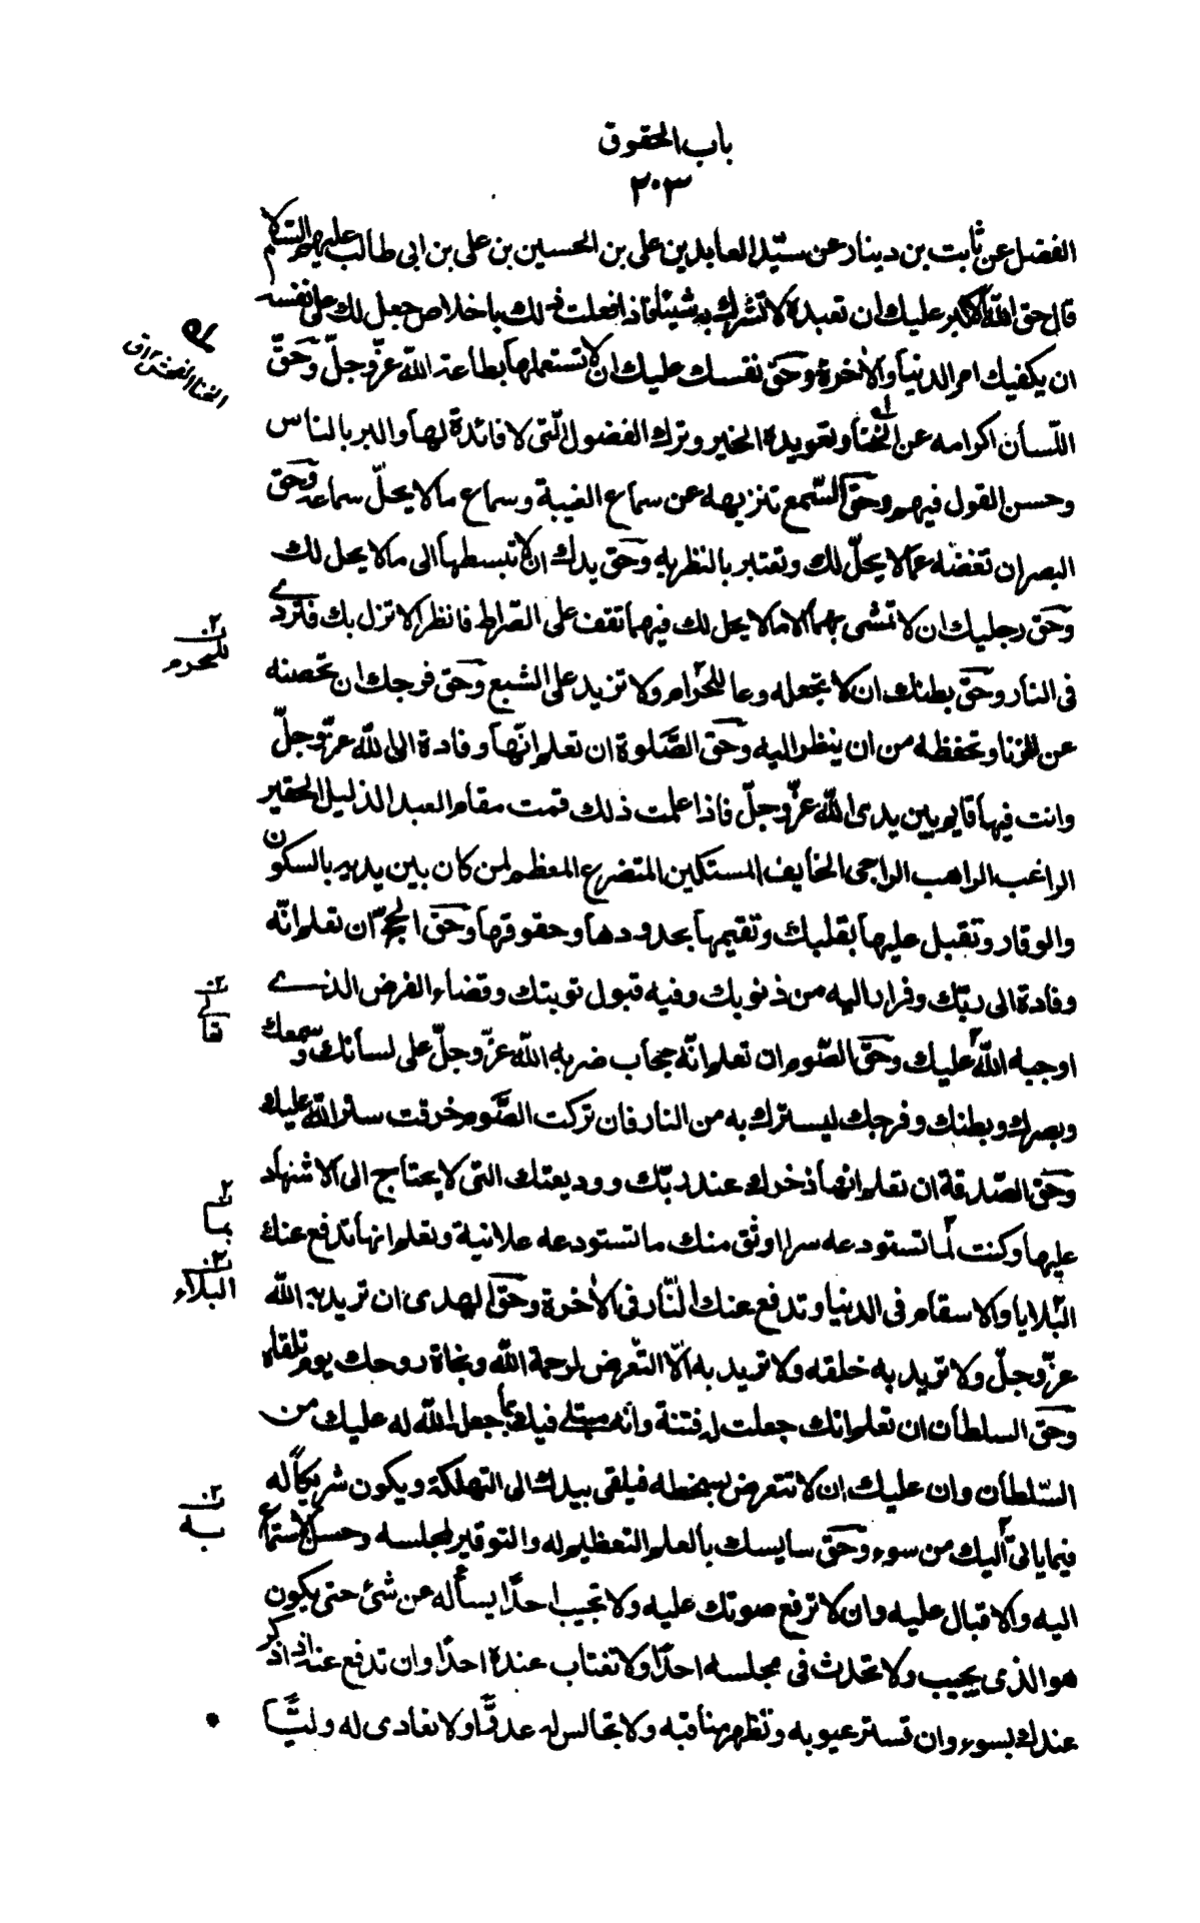 باب الحقوق
٢٠٣
الفضل عن ثابت بن دينار عن سيّد العابدين على بن الحسين بن على بن ابى طالب عليهم السّلام
قال حق اللّه الاكبر عليك ان تعبده لا تشرك به شيئا فاذا فعلت ذلك باخلاص جعل لك على نفسه
ان يكفيك امر الدنيا والاخرة وحق نفسك عليك ان لا تستعملها بطاعة اللّه عزّ وجلّ وحقّ
اللّسان اكرامه عن الخنا وتعويده الخير وترك الفضول الّتى لا فائدة لها والبر بالناس
وحسن القول فيهم وحق السّمع تنزيهه عن سماع الغيبة وسماع ما لا يحلّ سماعه وحق
البصر ان تغضه عما لا يحلّ لك وتعتبر بالنظر به وحق يدك ان لا تبسطها الى ما لا يحل لك
وحق رجليك ان لا تمشى بهما الا ما لا يحل لك فيهما تقف على الصّراط فانظر الا تزل بك فتردى
فى النار وحق بطنك ان لا تجعله وعا للحرام ولا تزيد على الشبع وحق فرجك ان تحصنه
عن الزنا وتحفظه من ان ينظر اليه وحق الصّلوة ان تعلم انّها وفادة الى اللّه عزّ وجلّ
وانت فيها قايم بين يدى اللّه عزّ وجلّ فاذا علمت ذلك قمت مقام العبد الذليل الحقير
الراغب الراهب الراجى الخايف المستكين المتضرع المعظم لمن كان بين يديه بالسكون
والوقار وتقبل عليها بقلبك وتقيمها بحدودها وحقوقها وحق الحجّ ان تعلم انّه
وفادة الى ربّك وفرار اليه من ذنوبك وفيه قبول توبتك وقضاء الفرض الذى
اوجبه اللّه عليك وحق الصّوم ان تعلم انّه حجاب ضربه اللّه عزّ وجلّ على لسانك وسمعك
وبصرك وبطنك وفرجك ليسترك به من النار فان تركت الصّوم خرقت ستر اللّه عليك
وحق الصّدقة ان تعلم انها ذخرك عند ربّك ووديعتك التى لا يحتاج الى الاشهاد
عليها وكنت لما تستودعه سرا اوثق منك ما تستودعه علانية وتعلم انها تدفع عنك
البلايا والاسقام فى الدنيا وتدفع عنك النّار فى الاخرة وحق الهدى ان تريد به اللّه
عزّ وجلّ ولا تريد به خلقه ولا تريد به الّا التّعرض لرحمة اللّه ونجاة روحك يوم تلقاه
وحق السلطان ان تعلم انك جعلت له فتنة وانّه مبتلى فيك بما جعل اللّه له عليك من
السّلطان وان عليك ان لا تتعرض بسخطه فيلقى بيدك الى التهلكة ويكون شريكاً له
فيما ياتى اليك من سوء وحق سايسك بالعلم التعظيم له والتوقير لمجلسه وحسن الاستماع
اليه والاقبال عليه وان لا ترفع صوتك عليه ولا تجيب احدًا يسأله عن شئ حتى يكون
هو الذى يجيب ولا تحدث فى مجلسه احدًا ولا تغتاب عنده احدًا وان تدفع عنه اذا ذكر
عندك بسوء وان تستر عيوبه وتظهر مناقبه ولا تجالس له عدوّا ولا تعادى له وليًّا
الخنا الفحش ١٢ ق
للمحرم
تعالى
بما
البلاء
به